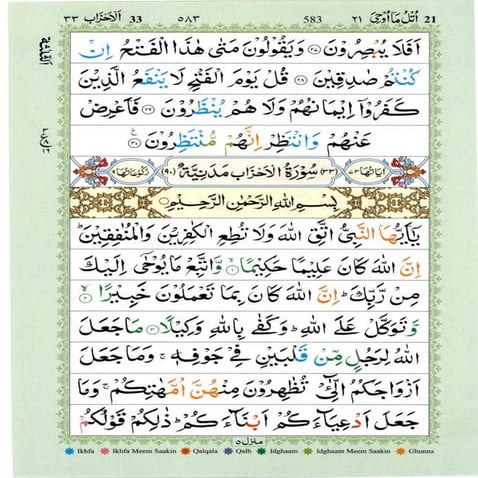 ٣٣ الاحزاب 33 ٥٨٣ 583 ٢١ اتل ما اوحی 21
اَفَلَا يُبْصِرُوْنَ ﴿٢٧﴾ وَيَقُوْلُوْنَ مَتٰى هٰذَا الْفَتْحُ اِنْ
كُنْتُمْ صٰدِقِيْنَ ﴿٢٨﴾ قُلْ يَوْمَ الْفَتْحِ لَا يَنْفَعُ الَّذِيْنَ
كَفَرُوْٓا اِيْمَانُهُمْ وَلَا هُمْ يُنْظَرُوْنَ ﴿٢٩﴾ فَاَعْرِضْ
عَنْهُمْ وَانْتَظِرْ اِنَّهُمْ مُّنْتَظِرُوْنَ ﴿٣٠﴾
اٰيَاتُهَا ٧٣ (٣٣) سُوْرَةُ الْاَحْزَابِ مَدَنِيَّةٌ (٩٠) رُكُوْعَاتُهَا ٩
بِسْمِ اللّٰهِ الرَّحْمٰنِ الرَّحِيْمِ
يٰٓاَيُّهَا النَّبِيُّ اتَّقِ اللّٰهَ وَلَا تُطِعِ الْكٰفِرِيْنَ وَالْمُنٰفِقِيْنَ ؕ
اِنَّ اللّٰهَ كَانَ عَلِيْمًا حَكِيْمًا ﴿١﴾ وَّاتَّبِعْ مَا يُوْحٰٓى اِلَيْكَ
مِنْ رَّبِّكَ ؕ اِنَّ اللّٰهَ كَانَ بِمَا تَعْمَلُوْنَ خَبِيْرًا ﴿٢﴾
وَّتَوَكَّلْ عَلَى اللّٰهِ ؕ وَكَفٰى بِاللّٰهِ وَكِيْلًا ﴿٣﴾ مَا جَعَلَ
اللّٰهُ لِرَجُلٍ مِّنْ قَلْبَيْنِ فِيْ جَوْفِهٖ ۚ وَمَا جَعَلَ
اَزْوَاجَكُمُ الّٰٓـِٔيْ تُظٰهِرُوْنَ مِنْهُنَّ اُمَّهٰتِكُمْ ۚ وَمَا
جَعَلَ اَدْعِيَآءَكُمْ اَبْنَآءَكُمْ ؕ ذٰلِكُمْ قَوْلُكُمْ
منزل ٥
Ikhfa Ikhfa Meem Saakin Qalqala Qalb Idghaam Idghaam Meem Saakin Ghunna